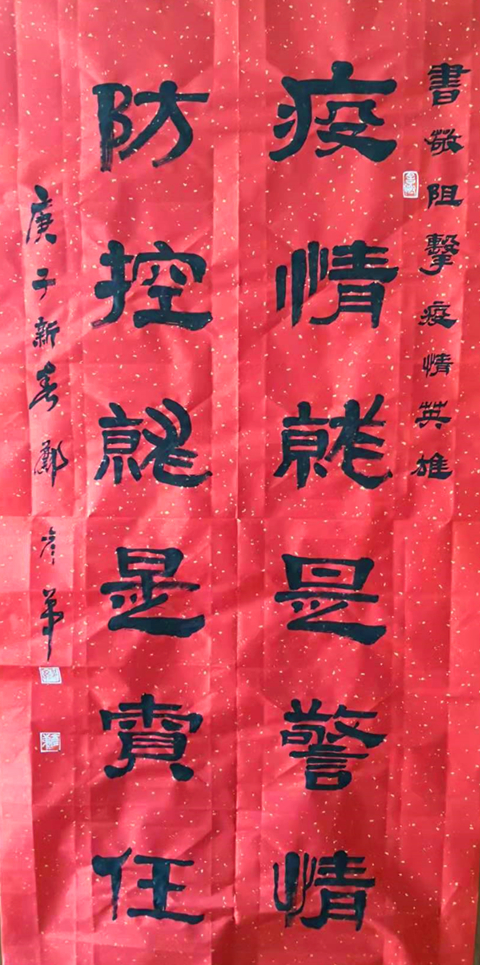 書敬阻擊疫情英雄
疫情就是警情
防控就是責任
庚子新春鄭